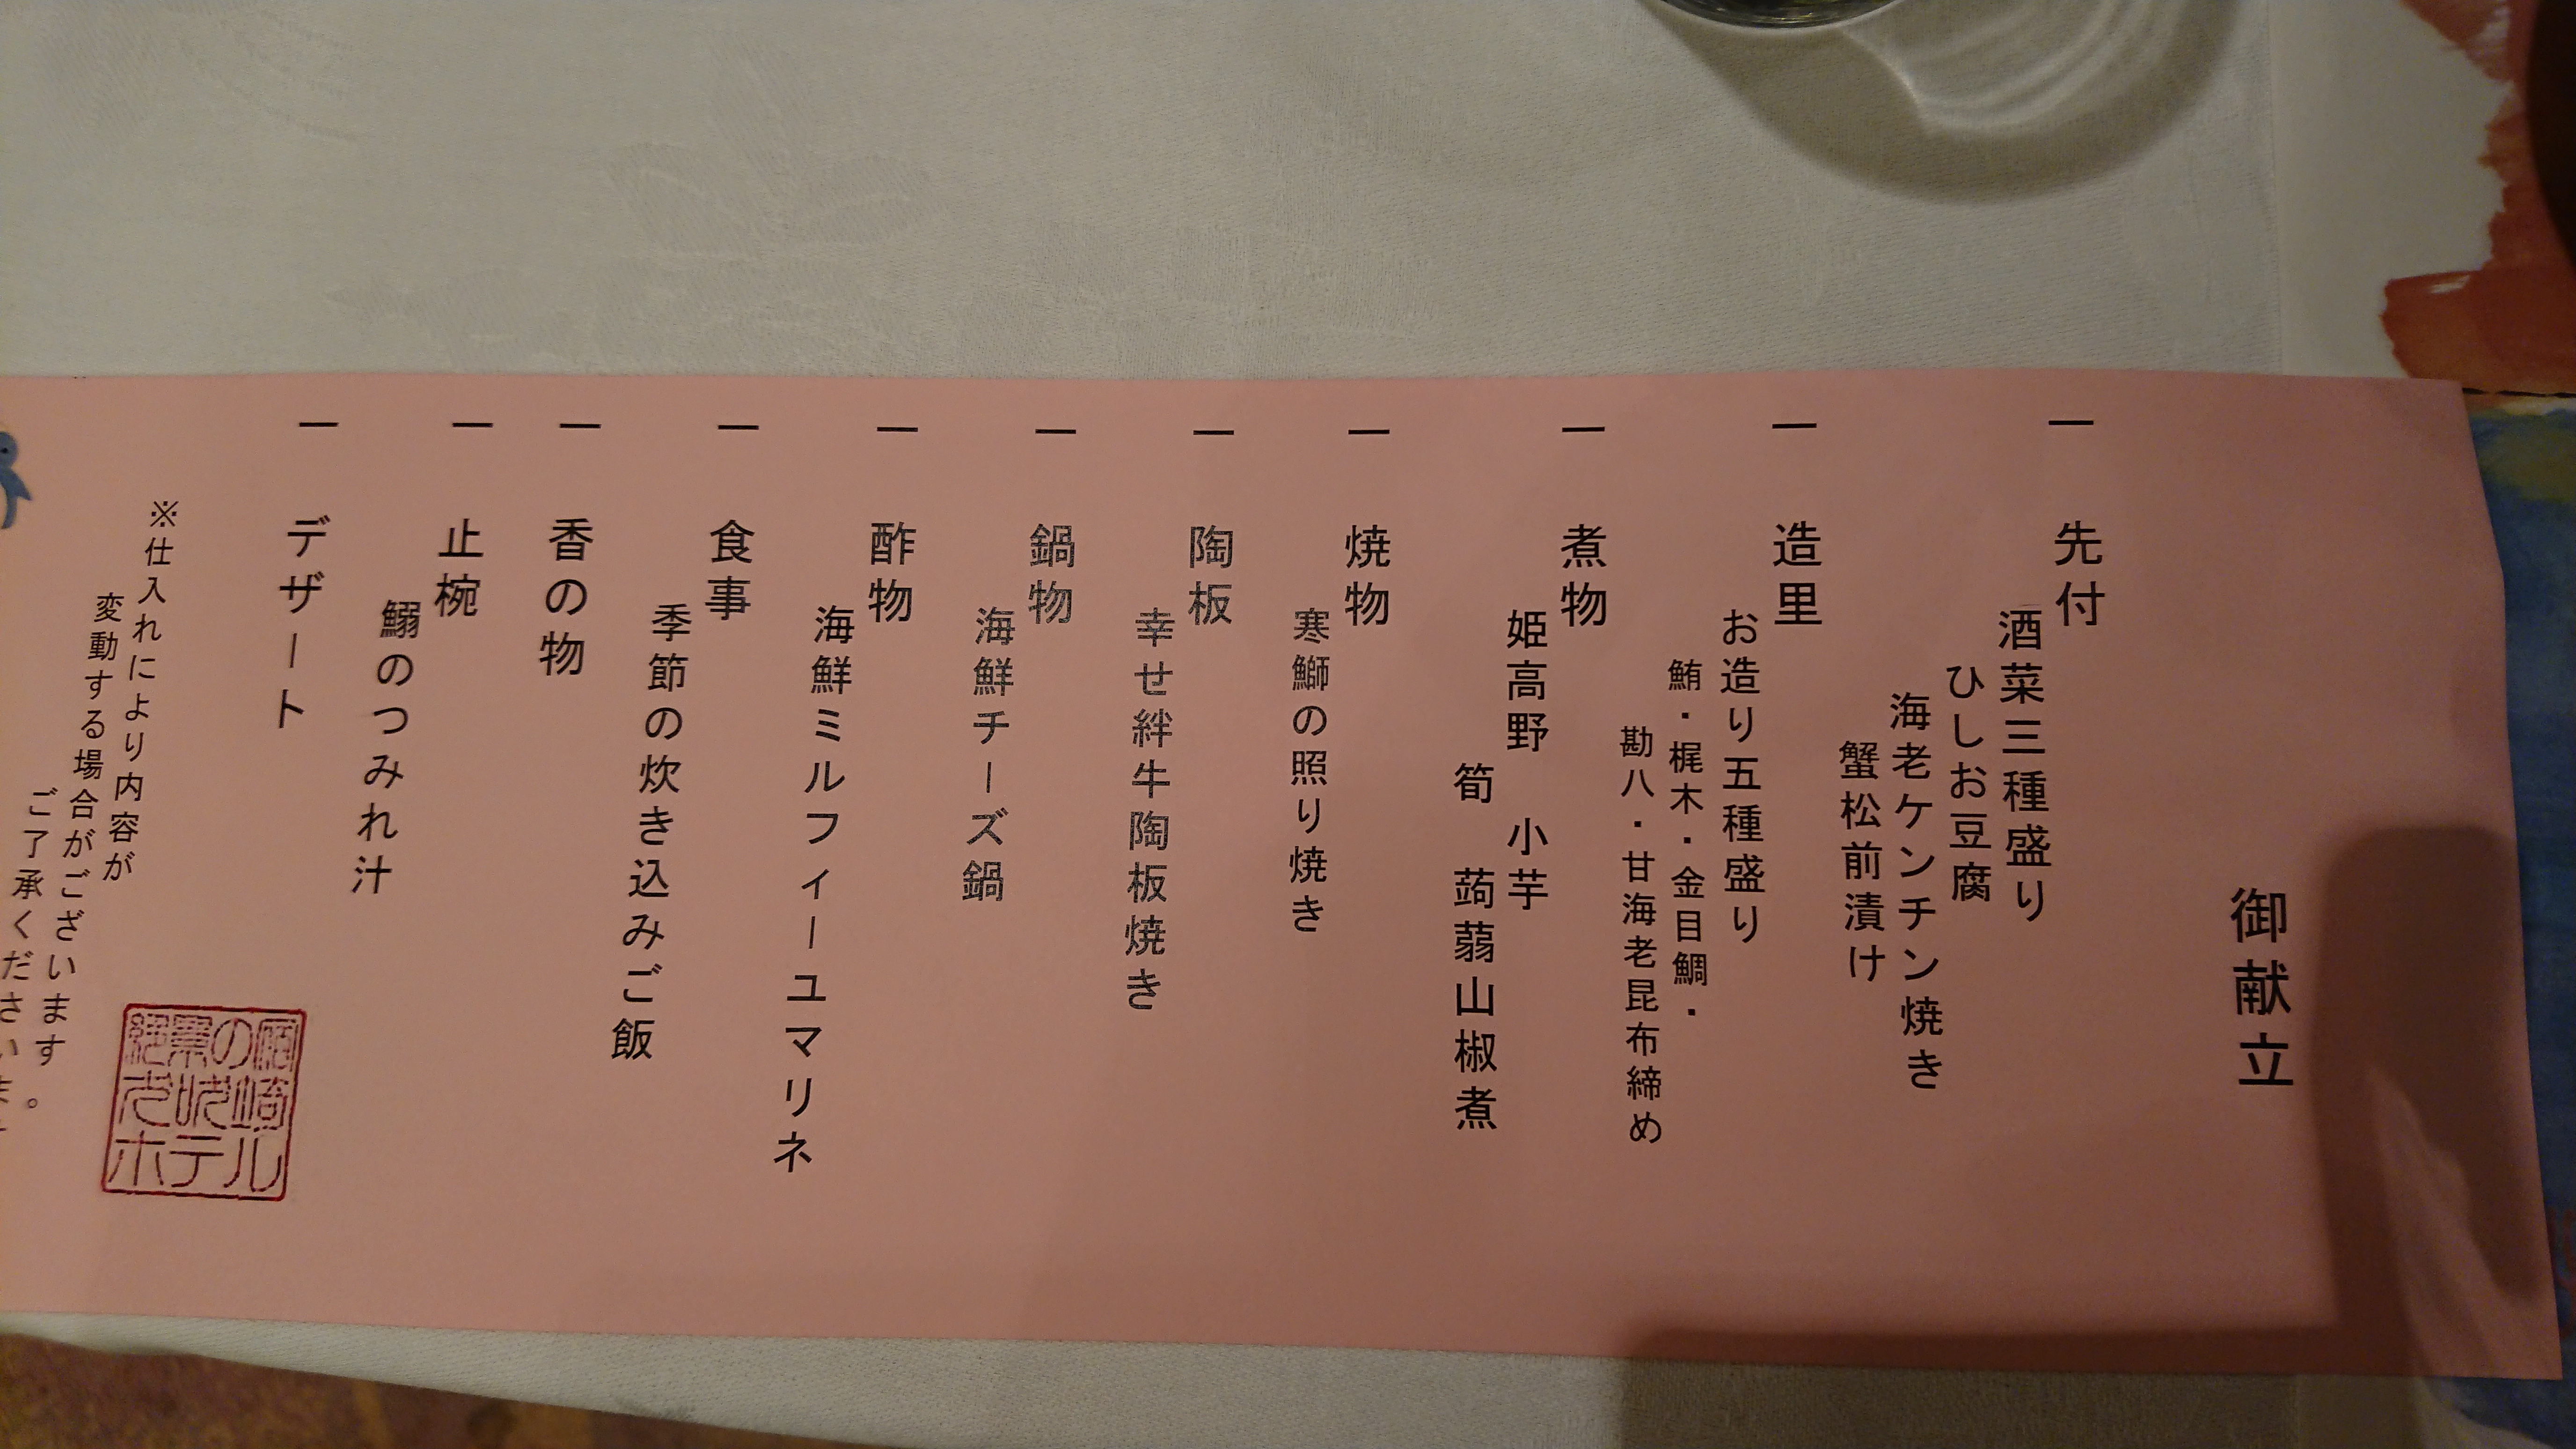 御献立
一 先付
酒菜三種盛り
ひしお豆腐
海老ケンチン焼き
蟹松前漬け
一 造里
お造り五種盛り
鮪・梶木・金目鯛・
勘八・甘海老昆布締め
一 煮物
姫高野 小芋
筍 蒟蒻山椒煮
一 焼物
寒鰤の照り焼き
一 陶板
幸せ絆牛陶板焼き
一 鍋物
海鮮チーズ鍋
一 酢物
海鮮ミルフィーユマリネ
一 食事
季節の炊き込みご飯
一 香の物
一 止椀
鰯のつみれ汁
一 デザート
※仕入れにより内容が
変動する場合がございます。
ご了承ください
ホテル